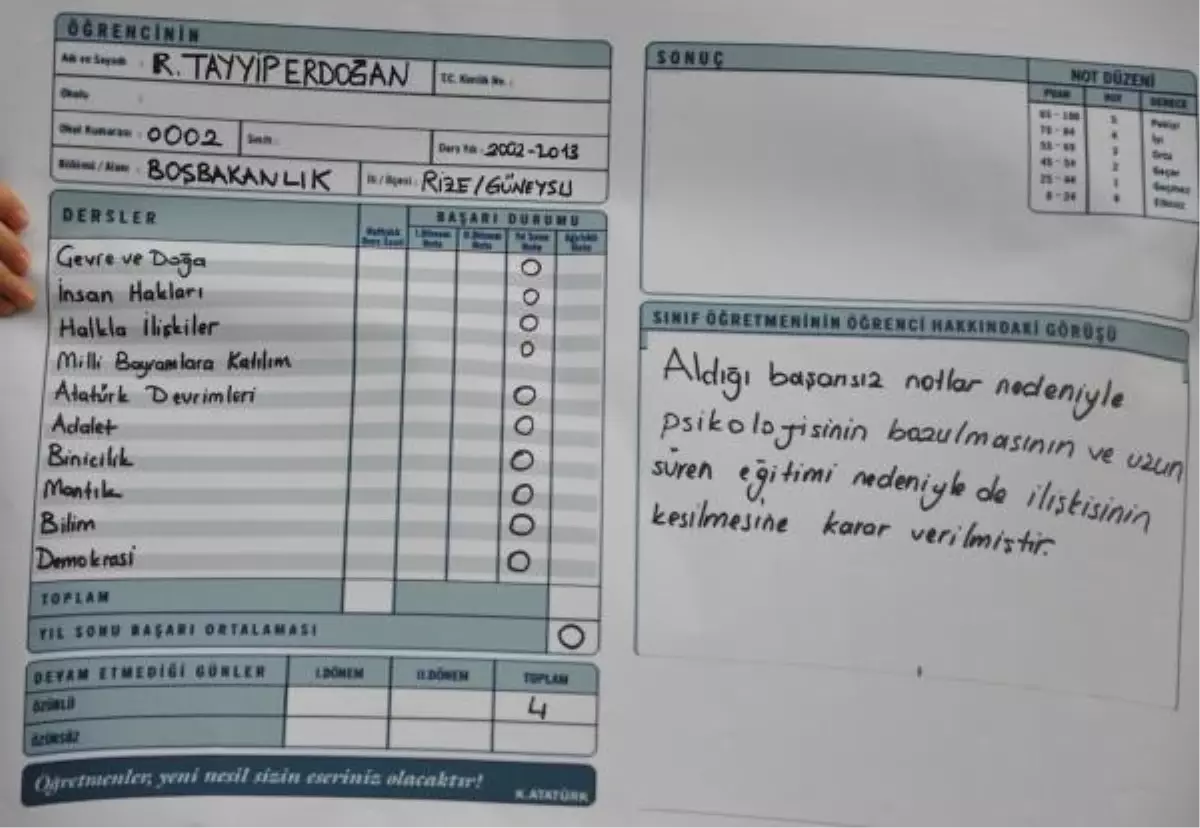 ÖĞRENCİNİN
Adı ve Soyadı : R. TAYYİP ERDOĞAN
T.C. Kimlik No. :
Okulu :
Okul Numarası : 0002
Sınıfı :
Ders Yılı : 2002-2013
Bölümü / Alanı : BOŞBAKANLIK
İli / İlçesi : RİZE/GÜNEYSU
DERSLER
BAŞARI DURUMU
Haftalık Ders Saati
I. Dönem Notu
II. Dönem Notu
Yıl Sonu Notu
Ağırlıklı Notu
Çevre ve Doğa O
İnsan Hakları O
Halkla İlişkiler O
Milli Bayramlara Katılım O
Atatürk Devrimleri O
Adalet O
Binicilik O
Mantık O
Bilim O
Demokrasi O
TOPLAM
YIL SONU BAŞARI ORTALAMASI O
DEVAM ETMEDİĞİ GÜNLER I.DÖNEM II.DÖNEM TOPLAM
ÖZÜRLÜ 4
ÖZÜRSÜZ
Öğretmenler, yeni nesil sizin eseriniz olacaktır!
K.ATATÜRK
SONUÇ
NOT DÜZENİ
PUAN NOT DERECE
85 - 100 5 Pekiyi
70 - 84 4 İyi
55 - 69 3 Orta
45 - 54 2 Geçer
25 - 44 1 Geçmez
0 - 24 0 Etkisiz
SINIF ÖĞRETMENİNİN ÖĞRENCİ HAKKINDAKİ GÖRÜŞÜ
Aldığı başarısız notlar nedeniyle
psikolojisinin bozulmasının ve uzun
süren eğitimi nedeniyle de ilişkisinin
kesilmesine karar verilmiştir.